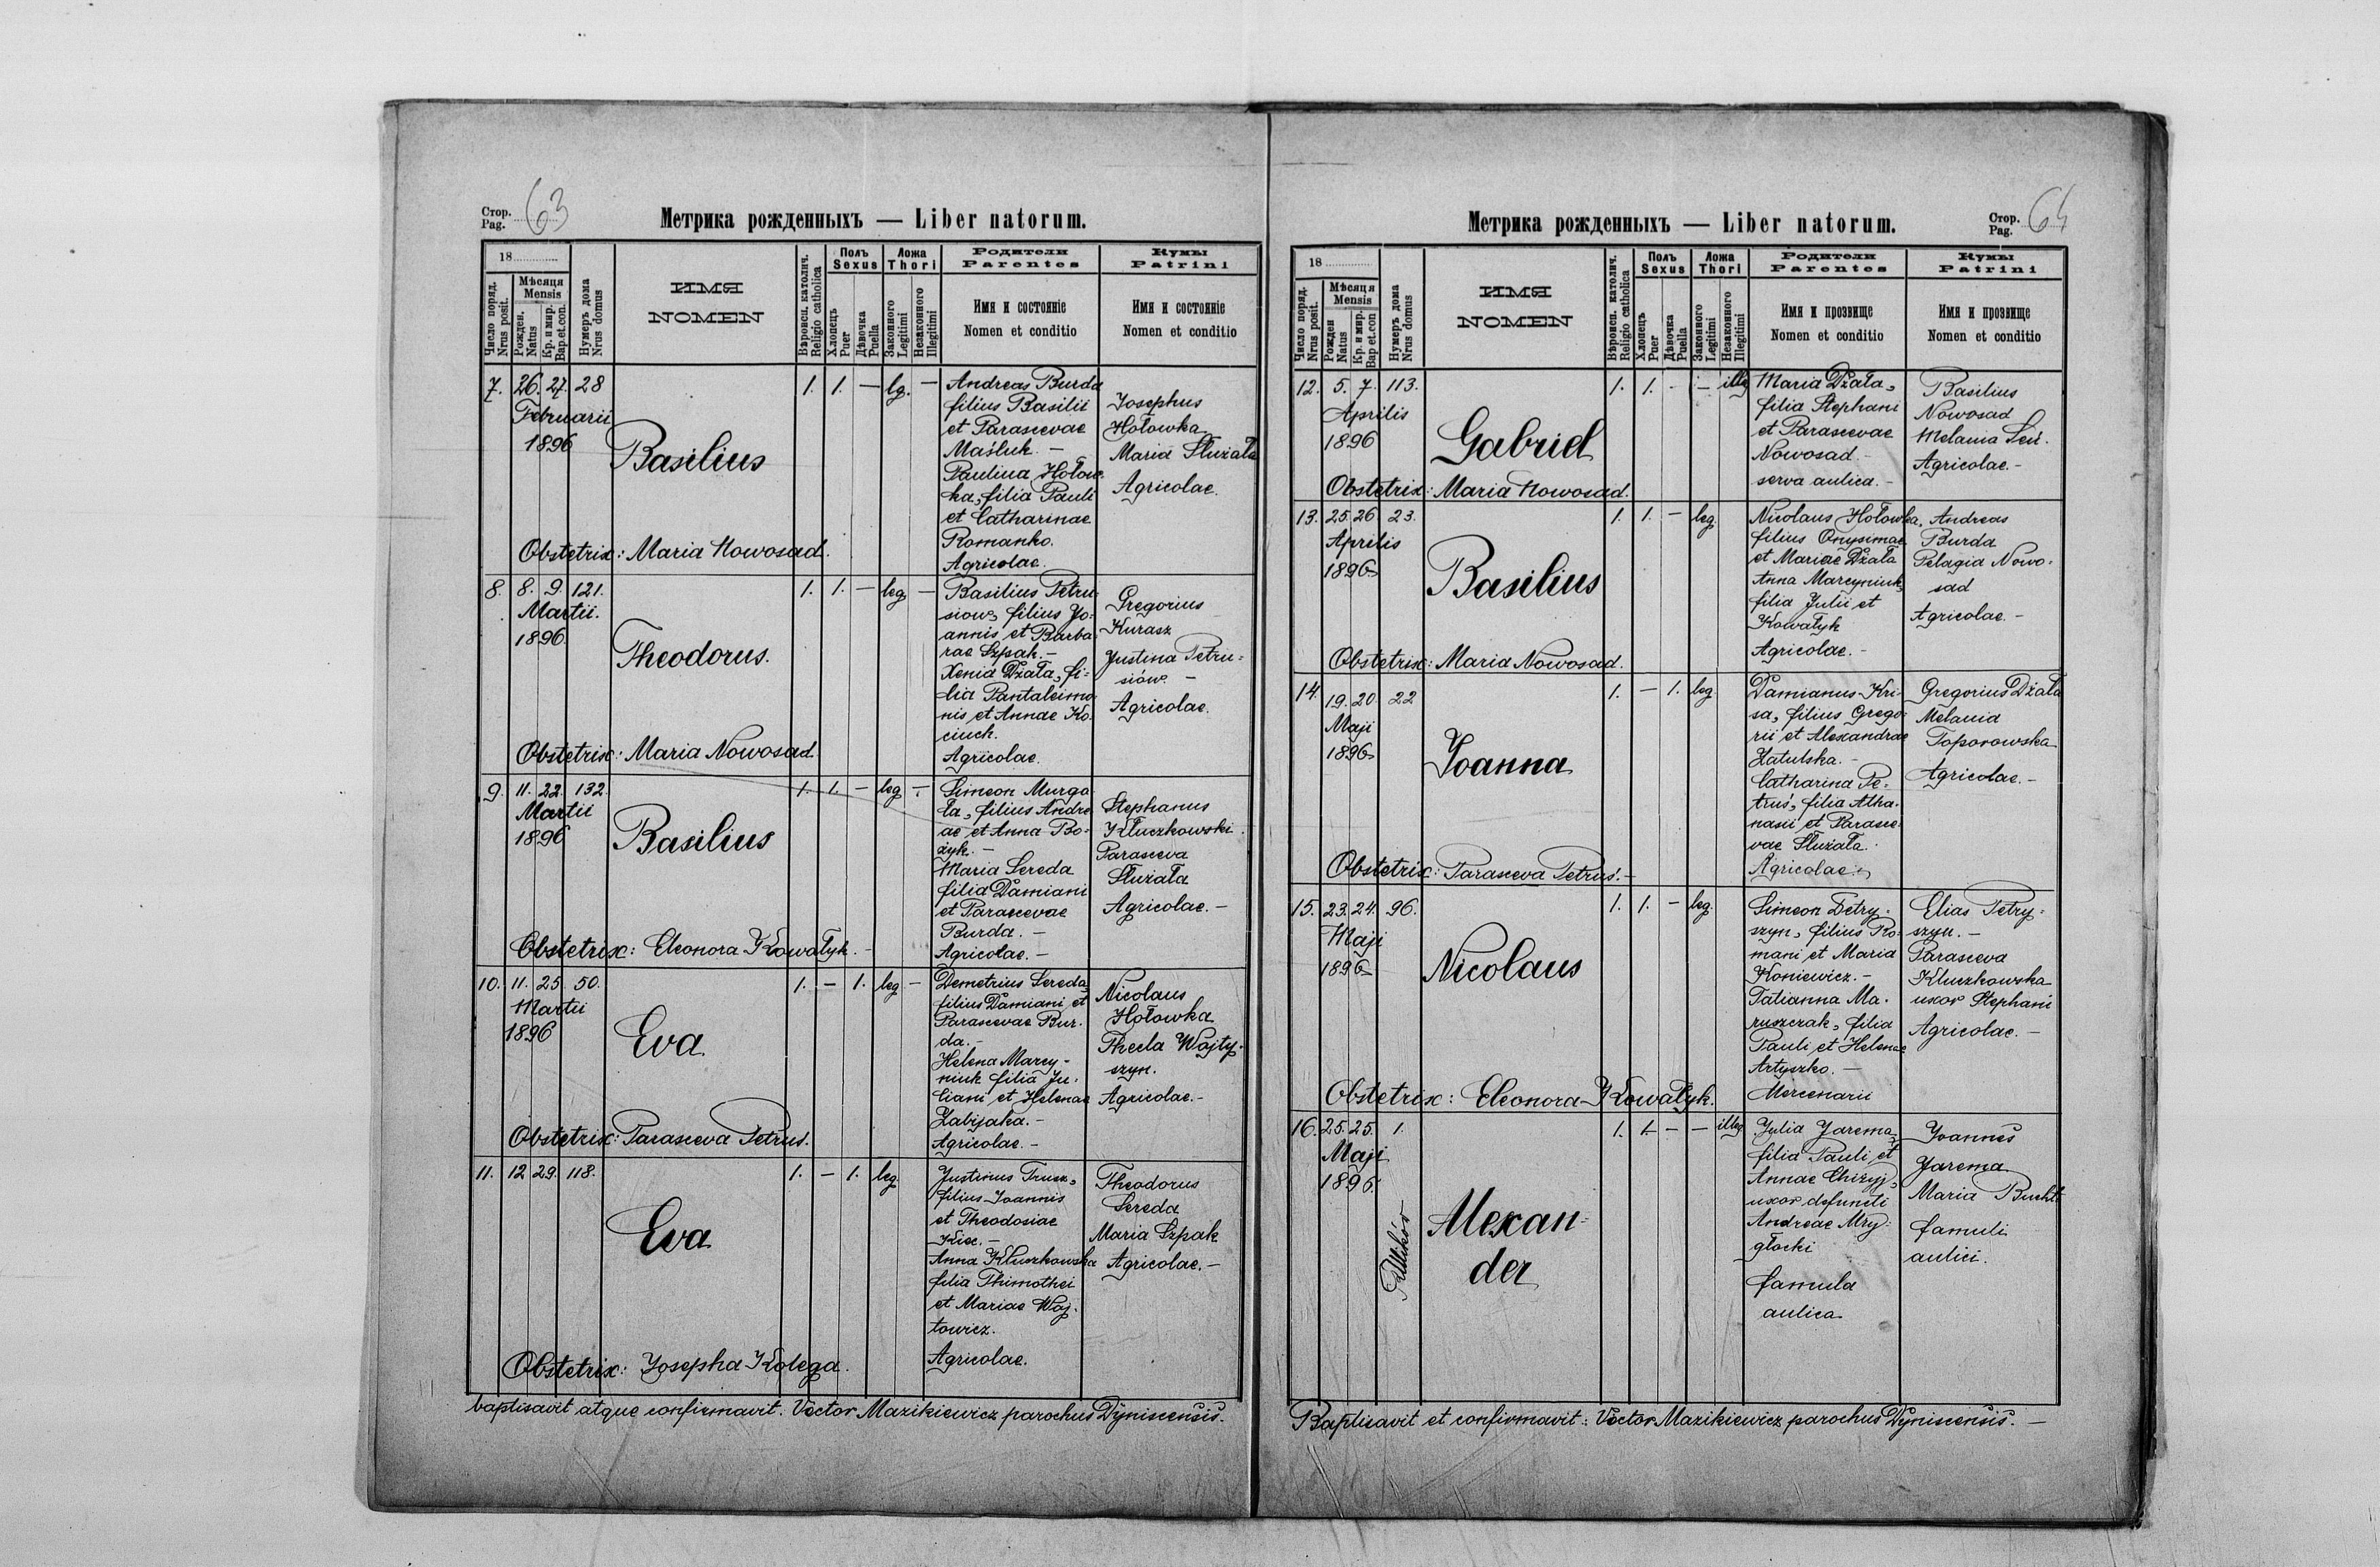 Стор. Pag. 63
Метрика рожденныхъ — Liber natorum.
18
Число поряд. Nrus posit.
Мѣсяця Mensis
Рожден. Natus
Кр. и мир. Bap.et.con.
Нумеръ дома Nrus domus
ИМЯ
NOMEN
Вѣроисп. католич. Religio catholica
Полъ Sexus
Хлопецъ Puer
Дѣвочка Puella
Ложа Thori
Законного Legitimi
Незаконного Illegitimi
Родители
Parentes
Имя и состояніе
Nomen et conditio
Кумы
Patrini
Имя и состояніе
Nomen et conditio
7. 26. 27. 28
Februarii
1896
Basilius
1. 1. — lg. —
Andreas Burda
filius Basilii
et Parascevae
Maśluk. —
Paulina Hołow-
ka, filia Pauli
et Catharinae
Romanko.
Agricolae.
Josephus
Hołowka
Maria Służała
Agricolae.
Obstetrix: Maria Nowosad.
8. 8. 9. 121.
Martii.
1896.
Theodorus.
1. 1. — leg —
Basilius Petru-
siow, filius Jo-
annis et Barba-
rae Szpak. —
Xenia Dżała, fi-
lia Pantaleimo-
nis et Annae Ko-
ciuch.
Agricolae.
Gregorius
Kurasz
Justina Petru-
siów. —
Agricolae.
Obstetrix: Maria Nowosad
9. 11. 22. 132.
Martii
1896
Basilius
1. 1. — leg —
Simeon Murga
ła, filius Andre
ae et Anna Bo-
żyk. —
Maria Sereda
filia Damiani
et Parascevae
Burda. —
Agricolae. —
Stephanus
Kłuczkowski
Parasceva
Służała
Agricolae. —
Obstetrix: Eleonora Kowałyk. —
10. 11. 25. 50.
Martii
1896
Eva
1. — 1. leg —
Demetrius Sereda,
filius Damiani et
Parascevae Bur-
da. —
Helena Marcy-
niuk filia Ju-
liani et Helenae
Zabijaka. —
Agricolae. —
Nicolaus
Hołowka
Thecla Wojty-
szyn.
Agricolae. —
Obstetrix: Parasceva Petrus.
11. 12 29. 118.
Eva
1. — 1. leg
Justinus Trusz,
filius Joannis
et Theodosiae
Kisc. —
Anna Kluszkowska
filia Thimothei
et Mariae Woj-
towicz.
Agricolae.
Theodorus
Sereda
Maria Szpak
Agricolae. —
Obstetrix: Josepha Kolega.
baptisavit atque confirmavit. Victor Mazikiewicz parochus Dyniscensis.
Метрика рожденныхъ — Liber natorum.
Стор. Pag. 64
18
Число поряд. Nrus posit.
Мѣсяця Mensis
Рожден Natus
Кр. и мир. Bap et.con
Нумеръ дома Nrus domus
ИМЯ
NOMEN
Вѣроисп. католич. Religio catholica
Полъ Sexus
Хлопецъ Puer
Дѣвочка Puella
Ложа Thori
Законного Legitimi
Незаконного Illegitimi
Родители
Parentes
Имя и прозвище
Nomen et conditio
Кумы
Patrini
Имя и прозвище
Nomen et conditio
12. 5. 7. 113.
Aprilis
1896
Gabriel
1. 1. - — illg
Maria Dżała,
filia Stephani
et Parascevae
Nowosad. —
serva aulica. —
Basilius
Nowosad
Melania Seń.
Agricolae. —
Obstetrix: Maria Nowosad.
13. 25. 26 23.
Aprilis
1896
Basilius
1. 1. — leg.
Nicolaus Hołowka,
filius Onysimae
et Mariae Dżała
Anna Marcyniuk,
filia Julii et
Kowałyk
Agricolae. —
Andreas
Burda
Pelagia Nowo-
sad
Agricolae. —
Obstetrix: Maria Nowosad.
14. 19. 20. 22
Maji
1896
Joanna
1. — 1. leg
Damianus Kri-
sa, filius Grego-
rii et Alexandrae
Hatulska. —
Catharina Pe-
truś, filia Atha-
nasii et Parasce-
vae Służała.
Agricolae.
Gregorius Dżała
Melania
Toporowska
Agricolae. —
Obstetrix: Parasceva Petrus. —
15. 23. 24. 96.
Maji
1896
Nicolaus
1. 1. — leg.
Simeon Petry-
szyn, filius Ro-
mani et Maria
Koniewicz. —
Tatianna Ma-
ruszczak, filia
Pauli et Helenae
Artyszko. —
Mercenarii
Elias Petry-
szyn. —
Parasceva
Kluczkowska
uxor Stephani
Agricolae. —
Obstetrix: Eleonora Kowałyk.
16. 25. 25. 1.
Maji
1896.
Alexan-
der
1. 1. — — illeg
Julia Jarema,
filia Pauli et
Annae Chizyj,
uxor defuncti
Andreae Mry-
głocki
famula
aulica
Joannes
Jarema
Maria Bucht
famuli
aulici.
Baptisavit et confirmavit: Victor Mazikiewicz parochus Dyniscensis. —